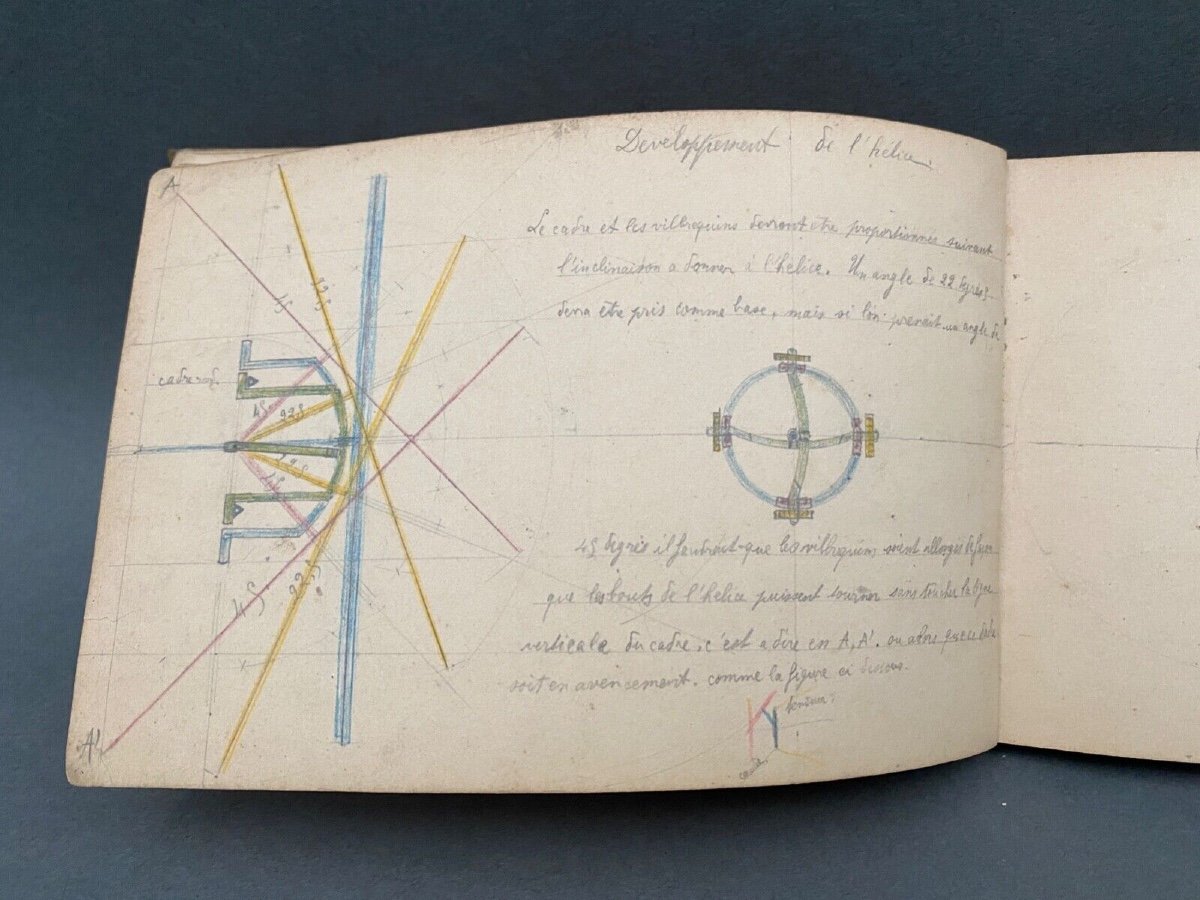 Developpement de l'hélice.
Le cadre et les villrequins devront etre proportionnés suivant
l'inclinaison a donner à l'hélice. Un angle de 22 dgrés
devra etre pris comme base, mais si l'on prenait un angle de
45 dgrés il faudrait que les villrequins soient allongés de façon
que les bouts de l'hélice puissent tourner sans toucher la ligne
verticale du cadre, c'est a dire en A, A'. ou alors que ce cadre
soit en avencement. comme la figure ci dessous.
A
45
22,5
cadre
45
22,5
22,5
45
45
22,5
A'